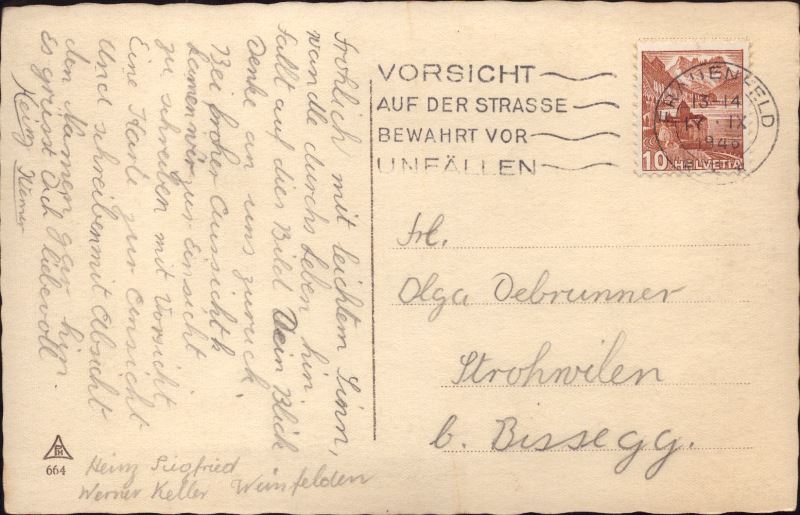 Fröhlich mit leichtem Sinn,
wandle durchs Leben hin
fällt auf dies Bild Dein Blick
Denke an uns zurück.
Bei froher Aussicht
kamen wir zur Einsicht
zu schreiben mit Vorsicht
Eine Karte zur Ansicht
Und schreiben mit Absicht
den Namen ganz hin.
Es grüsst Dich liebevoll
Heinz Werner
VORSICHT
AUF DER STRASSE
BEWAHRT VOR
UNFÄLLEN
FRAUENFELD
13-14
17. IX
1946
10 HELVETIA
Frl.
Olga Debrunner
Strohwilen
b. Bissegg.
664
Heinz Siegfried
Werner Keller Weinfelden